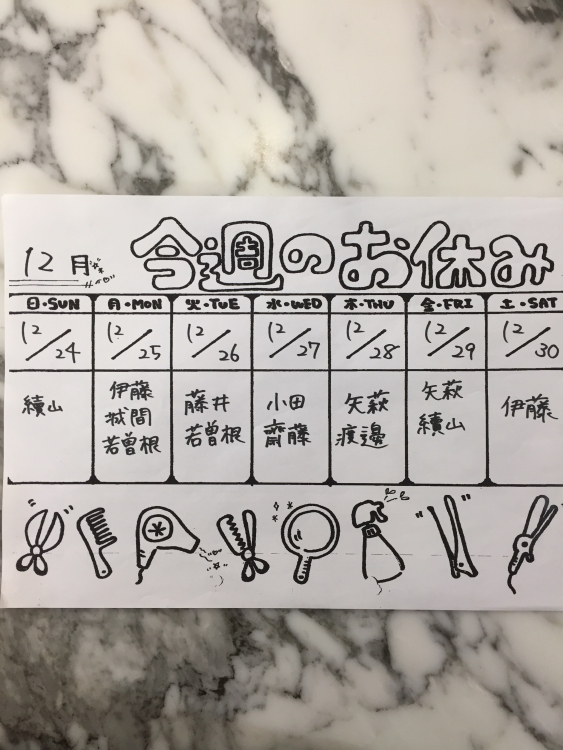 12月
今週のお休み
日・SUN 月・MON 火・TUE 水・WED 木・THU 金・FRI 土・SAT
12/24 12/25 12/26 12/27 12/28 12/29 12/30
續山
伊藤
城間
若曽根
藤井
若曽根
小田
齋藤
矢萩
渡邊
矢萩
續山
伊藤